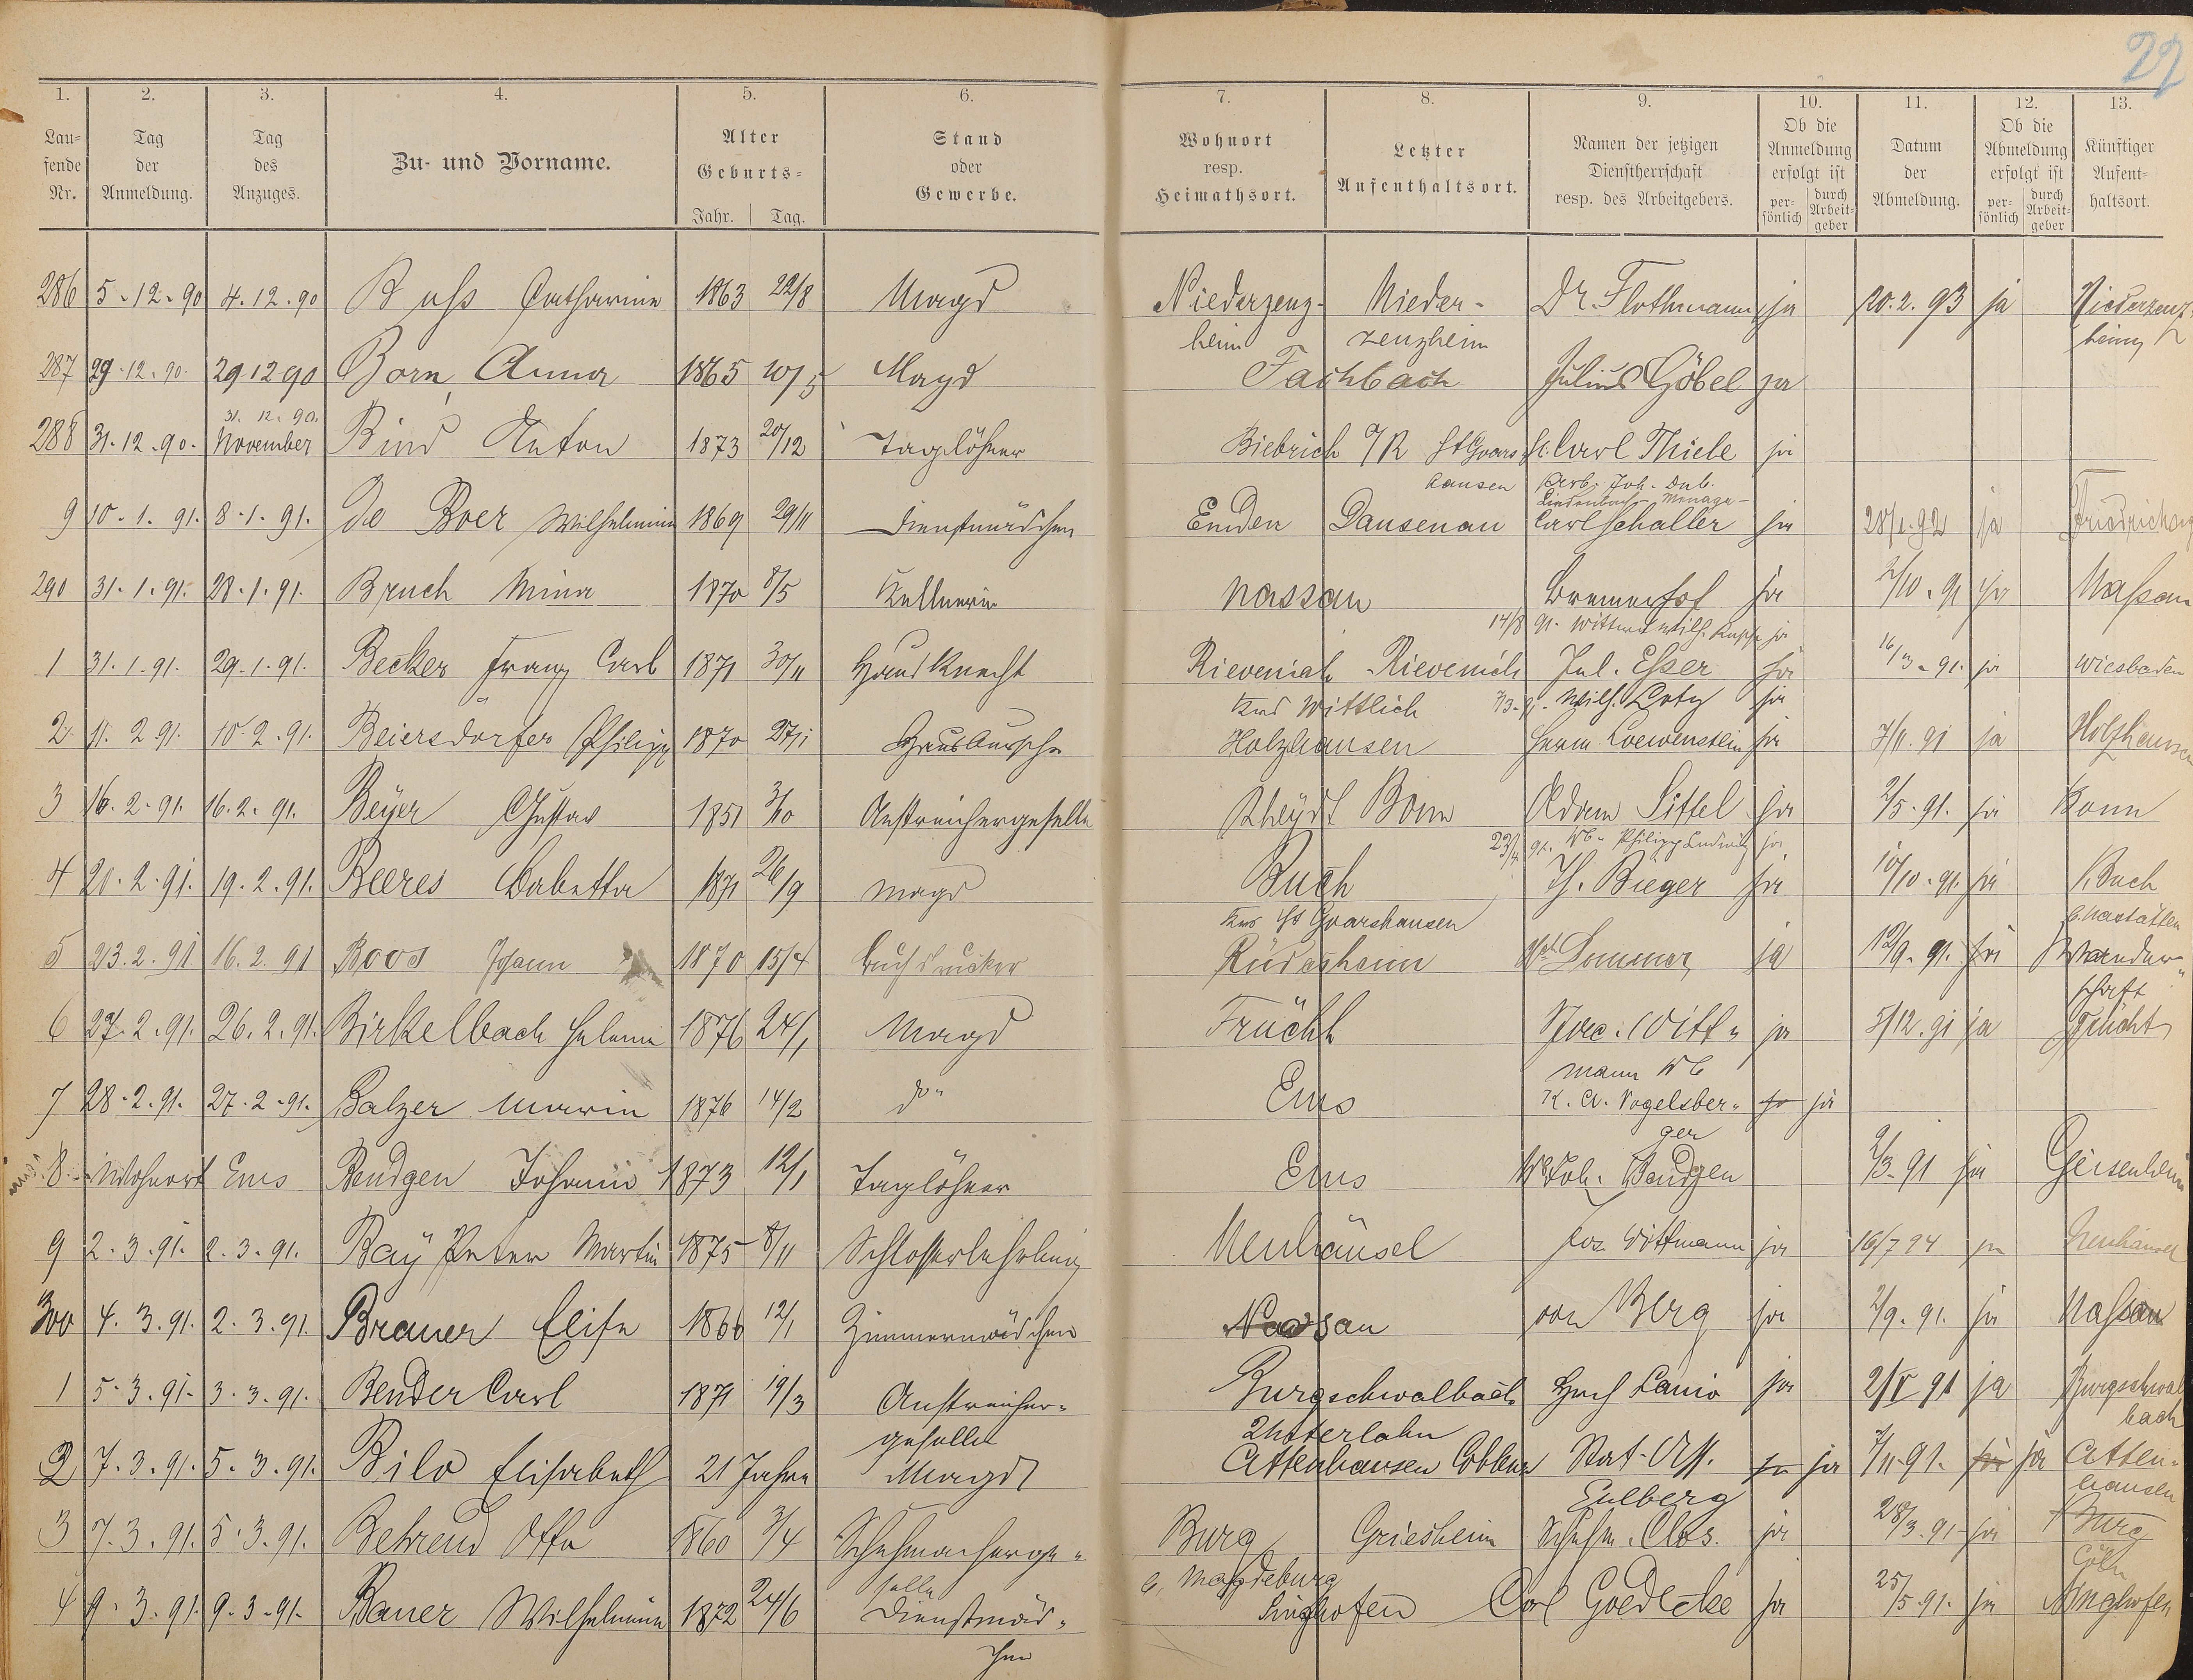 22
1. 2. 3. 4. 5. 6. 7. 8. 9. 10. 11. 12. 13.
Laufende Nr. Tag der Anmeldung. Tag des Anzuges. Zu- und Vorname. Alter Geburts= Jahr. Tag. Stand oder Gewerbe. Wohnort resp. Heimathsort. Letzter Aufenthaltsort. Namen der jetzigen Dienstherrschaft resp. des Arbeitgebers. Ob die Anmeldung erfolgt ist persönlich durch Arbeitgeber Datum der Abmeldung. Ob die Abmeldung erfolgt ist persönlich durch Arbeitgeber Künftiger Aufenthaltsort.
286 5-12-90 4.12.90 Buhs Catharine 1863 22/8 Magd Niederzenz- Nieder- Dr. Flothmann ja 20.2.93 ja Niederzenz-
heim zenzheim heim
287 29-12.90. 29 12 90 Born, Anna 1865 10/5 Magd Fachbach Julius Göbel ja
31. 12. 90.
288 31-12-90. November Bind Anton 1873 20/12 Taglöhner Biebrich a/R St Goars- Carl Thiele ja
hausen
9 10-1.91. 8-1-91. de Boer Wilhelmine 1869 29/11 Dienstmädchen Emden Dausenau Carl Schaller ja 28/1.92 ja
290 31-1.91. 28.1.91. Bruch Mina 1870 8/5 Kellnerin Nassau Bremerhof ja 2/10.91 ja Nassau
14/8 91. Wittwe Wilh. ja
1 31.1.91. 29.1.91. Becker Franz Carl 1871 30/11 Hausknecht Rievenich Rievenich Jul. Esser ja 16/3-91. ja Wiesbaden
Krs Wittlich Wilh. Lotz ja
2. 11.2 91. 10.2.91. Beiersdörfer Philipp 1870 27/1 Hausbursche Holzhausen Herm. Loewenstein ja 7/11.91 ja Holzhausen
3 16.2.91. 16.2.91. Beyer Gustav 1851 3/10 Anstreichergeselle Rheydt Bonn Adam Sittel ja 2/5.91. ja Bonn
23/4 91. Wb. Philipp Ludwig ja
4 20.2.91. 19.2.91. Beeres Babetta 1871 26/9 Magd Buch Th. Bieger ja 10/10-91. ja Buch
Krs St Goarshausen b. Nastätten
5 23.2.91 16.2.91 Boos Johann 1870 15/4 Buchdrucker Rüdesheim Sommer ja 12/9.91. ja Wander-
schaft
6 27.2.91. 26.2.91. Birkelbach Helene 1876 24/1 Magd Frücht Witt- ja 5/12.91 ja Frücht
mann Wb
7 28.2.91. 27.2.91. Balzer Marie 1876 14/2 do" Ems K. A. Vogelsber- ja ja
ger
8 Wohnort Ems Bendgen Johann 1873 12/1 Taglöhner Ems Wb Joh. Bendgen 2/3-91 ja Geisenheim
9 2.3.91. 2.3.91. Bay Peter Martin 1875 8/11 Schlosserlehrling Neuhäusel Jos. Wittmann ja 16/7 94 ja Neuhäusel
300 4.3.91. 2.3.91. Brauer Elise 1866 12/1 Zimmermädchen Nassau von Berg ja 2/9.91. ja Nassau
1 5.3.91. 3.3.91. Bender Carl 1871 19/3 Anstreicher- Burgschwalbach Hch Lanio ja 2/V 91 ja Burgschwal
geselle Unterlahn bach
2 7.3.91. 5.3.91. Bilo Elisabeth 21 Jahre Magd Attenhausen Coblenz Rat-Ass. ja ja 7/11.91. ja ja Atten-
Eulberg hausen
3 7.3.91. 5.3.91. Behrend Otto 1860 3/4 Schuhmacherge- Burg Griesheim Schuhm. Clos. ja 28/3.91 ja Burg
selle b. Magdeburg Cöln
4 9.3.91. 9.3.91. Bauer Wilhelmine 1872 24/6 Dienstmäd- Singhofen Carl Goedecke ja 25/5.91. ja Singhofen
chen